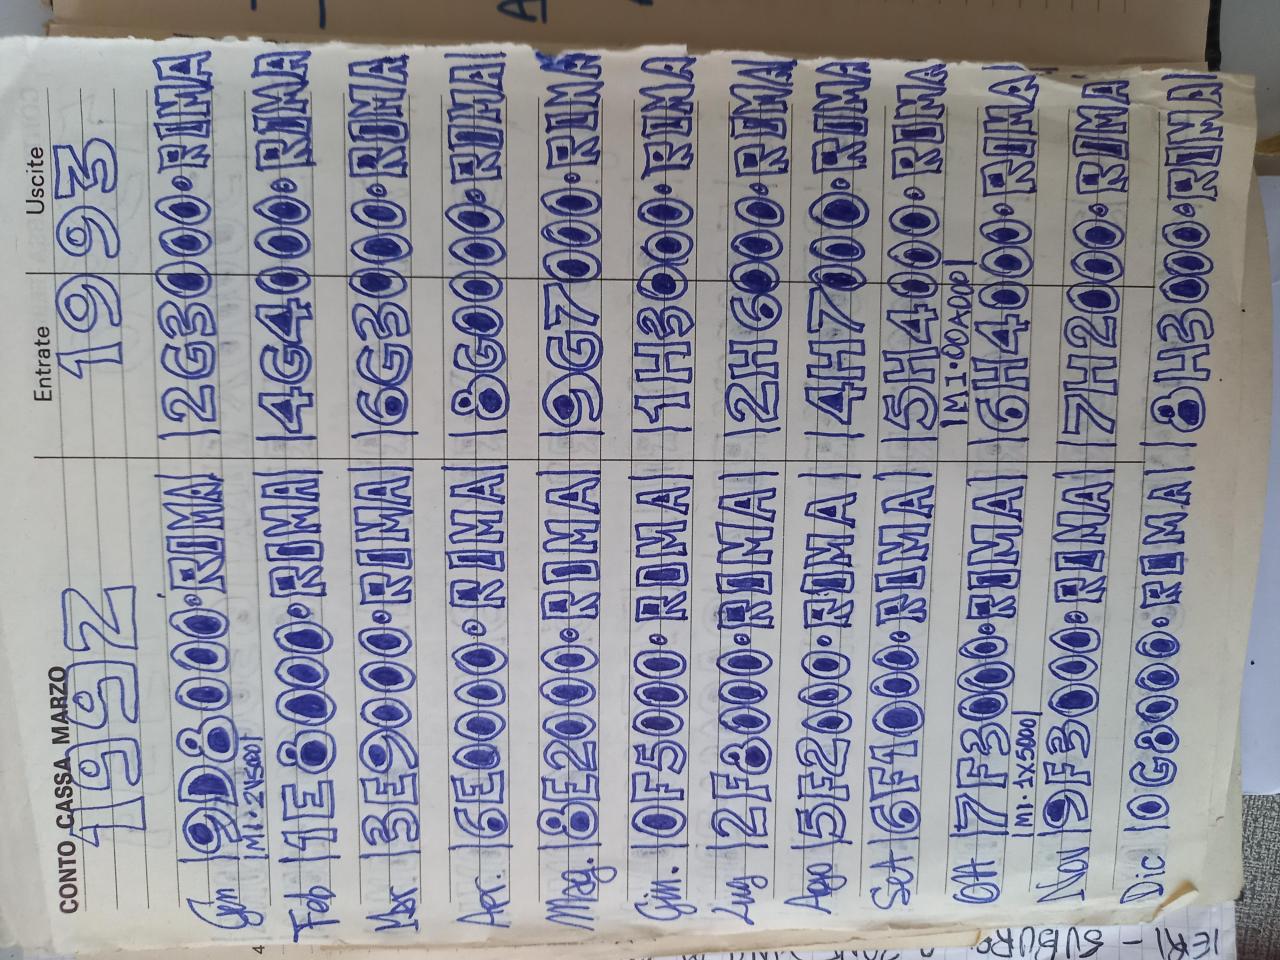 CONTO CASSA MARZO
Entrate Uscite
1992 1993
Gen |9D8000•RIMA| |2G3000•RIMA
|MI•2Y5000|
Feb |1E8000•RIMA| |4G4000•RIMA
Mar |3E9000•RIMA| |6G3000•RIMA
Apr. |6E0000•RIMA| |8G0000•RIMA|
Mag. |8E2000•RIMA| |9G7000•RIMA
Giu. |0F5000•RIMA| |1H3000•RIMA
Lug |2F8000•RIMA| |2H6000•RIMA|
Ago |5F2000•RIMA| |4H7000•RIMA
Set |6F1000•RIMA| |5H4000•RIMA
|MI•00A000|
Ott |7F3000•RIMA| |6H4000•RIMA
|MI•1X5000|
Nov |9F3000•RIMA| |7H2000•RIMA
Dic |0G8000•RIMA| |8H3000•RIMA
4
IERI - SUBURR